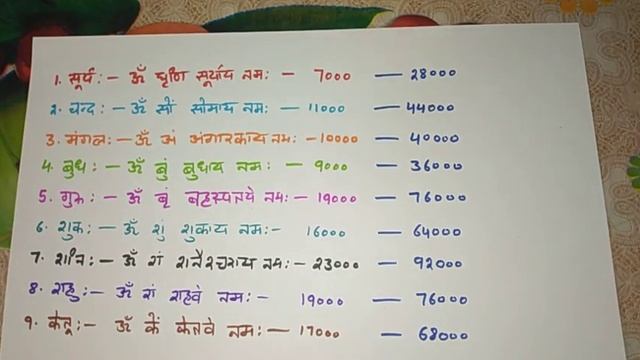 1. सूर्य:- ॐ घृणि सूर्याय नमः - 7000 - 28000
2. चन्द:- ॐ सों सोमाय नमः - 11000 - 44000
3. मंगल:- ॐ अं अंगारकाय नमः - 10000 - 40000
4. बुध:- ॐ बुं बुधाय नमः - 9000 - 36000
5. गुरू:- ॐ बृं बृहस्पतये नमः - 19000 - 76000
6. शुक्र:- ॐ शुं शुक्राय नमः- 16000 - 64000
7. शनि:- ॐ शं शनैश्चराय नमः- 23000 - 92000
8. राहु:- ॐ रां राहवे नमः- 19000 - 76000
9. केतू:- ॐ कें केतवे नमः - 17000 - 68000